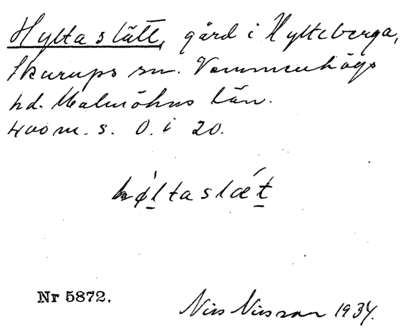 Hyltaslätt, gård i Hylteberga,
Skurups sn. Vemmenhögs
hd. Malmöhus län.
400 m. s. O. i 20.
hǿltaslǽt
Nr 5872.
Nils Nilsson 1934.